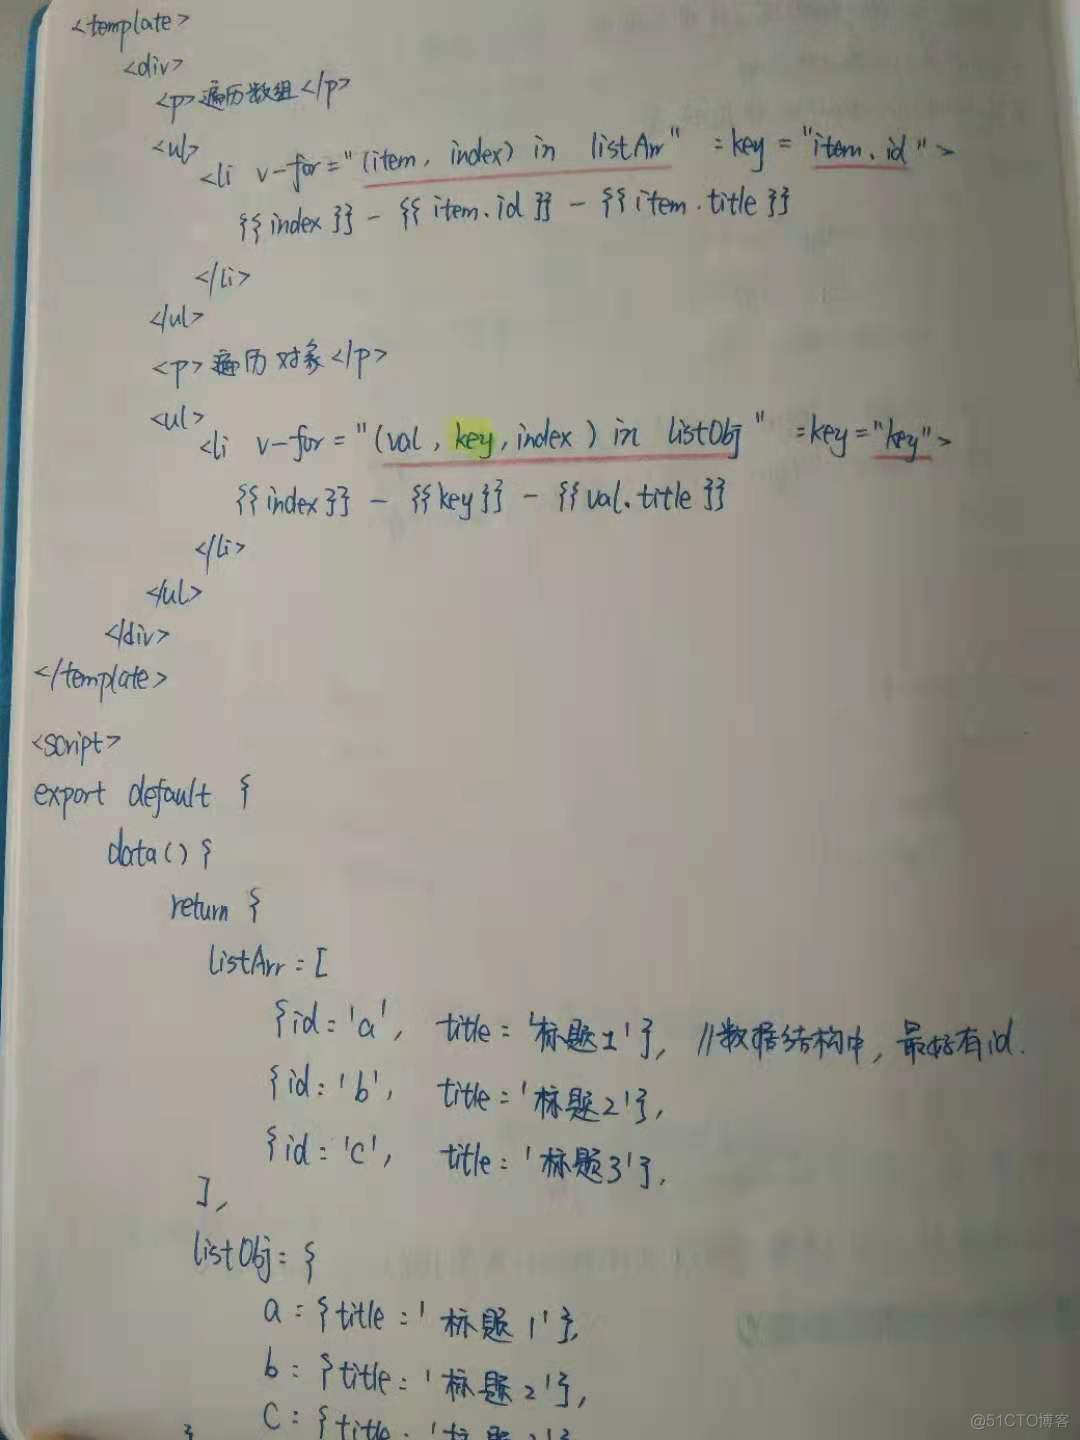 <template>
<div>
<p>遍历数组</p>
<ul>
<li v-for="(item, index) in listArr" :key="item.id">
{{index}} - {{item.id}} - {{item.title}}
</li>
</ul>
<p>遍历对象</p>
<ul>
<li v-for="(val, key, index) in listObj" :key="key">
{{index}} - {{key}} - {{val.title}}
</li>
</ul>
</div>
</template>
<script>
export default {
data() {
return {
listArr: [
{id: 'a', title: '标题1'}, //数据结构中, 最好有id.
{id: 'b', title: '标题2'},
{id: 'c', title: '标题3'},
],
listObj: {
a: {title: '标题1'},
b: {title: '标题2'},
c: {title:
}
@51CTO博客